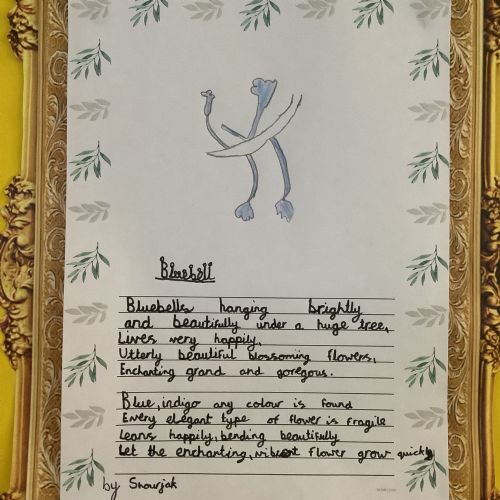 Bluebell
Bluebells hanging brightly
and beautifully under a huge tree,
Lives very happily,
Utterly beautiful blossoming flowers,
Enchanting grand and goregous.
Blue, indigo any colour is found
Every elegant type of flower is fragile
Leans happily, bending beautifully
Let the enchanting, vibrant flower grow quickly
by